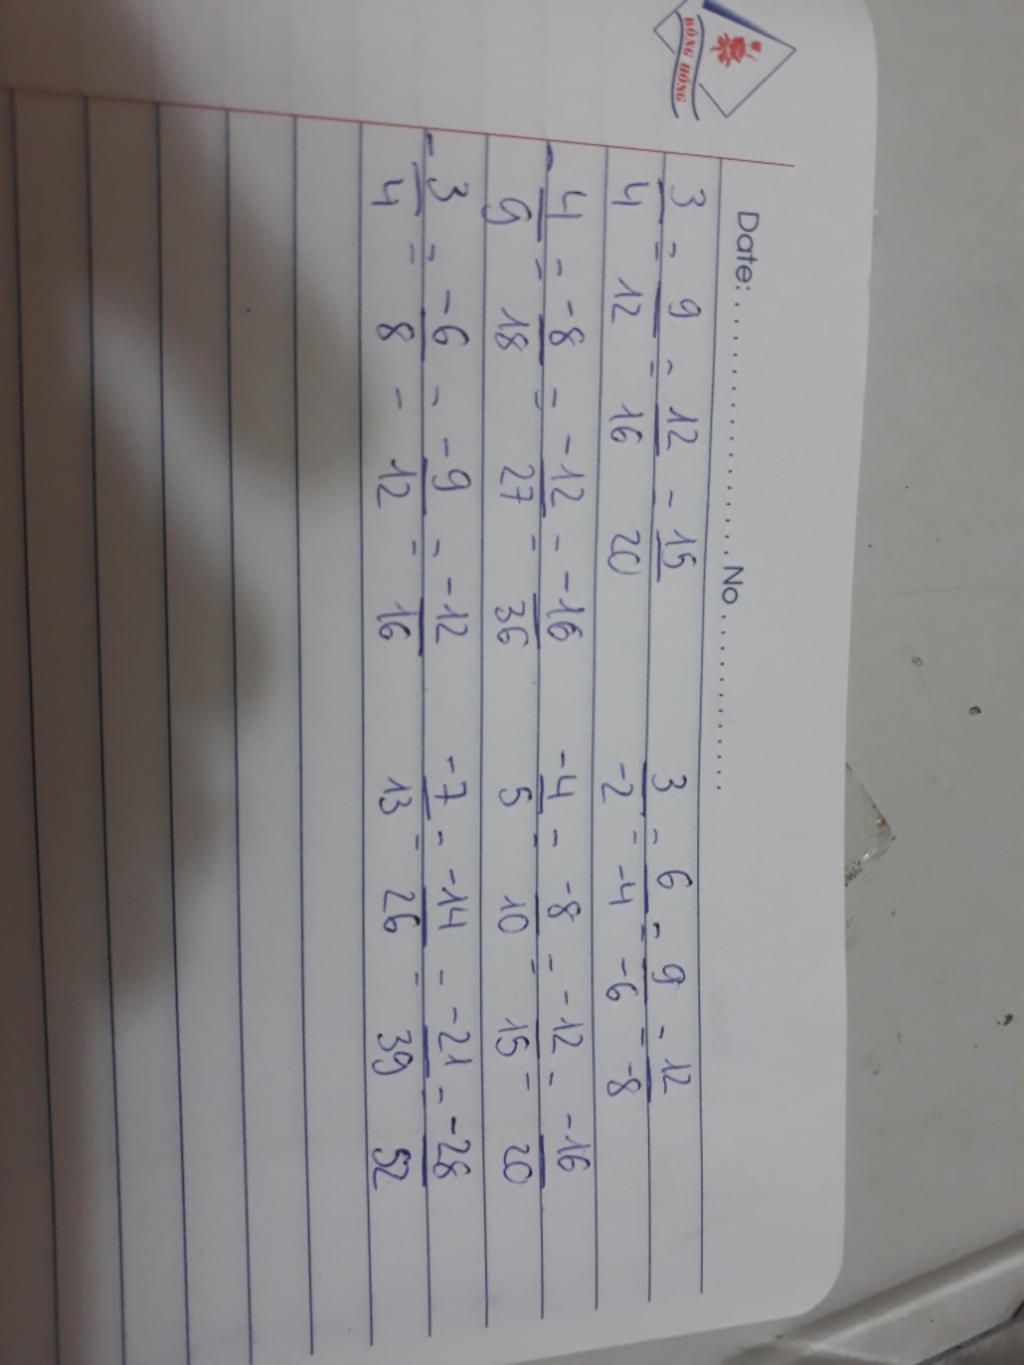 BÔNG HỒNG
Date: ........................ No ..................
3/4 = 9/12 = 12/16 = 15/20 3/-2 = 6/-4 = 9/-6 = 12/-8
-4/9 = -8/18 = -12/27 = -16/36 -4/5 = -8/10 = -12/15 = -16/20
-3/4 = -6/8 = -9/12 = -12/16 -7/13 = -14/26 = -21/39 = -28/52